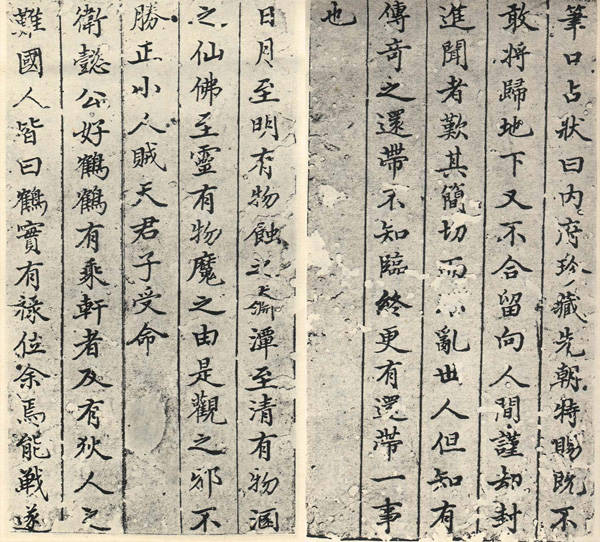 筆口占狀曰内府珍藏先朝特賜既不
敢將歸地下又不合留向人間謹却封
進聞者歎其簡切而亂世人但知有
傳奇之還帶不知臨終更有還帶一事
也
日月至明有物蝕之潭至清有物溷
之仙佛至靈有物魔之由是觀之邪不
勝正小人賊天君子受命
衛懿公好鶴鶴有乘軒者及有狄人之
難國人皆曰鶴實有祿位余焉能戰遂